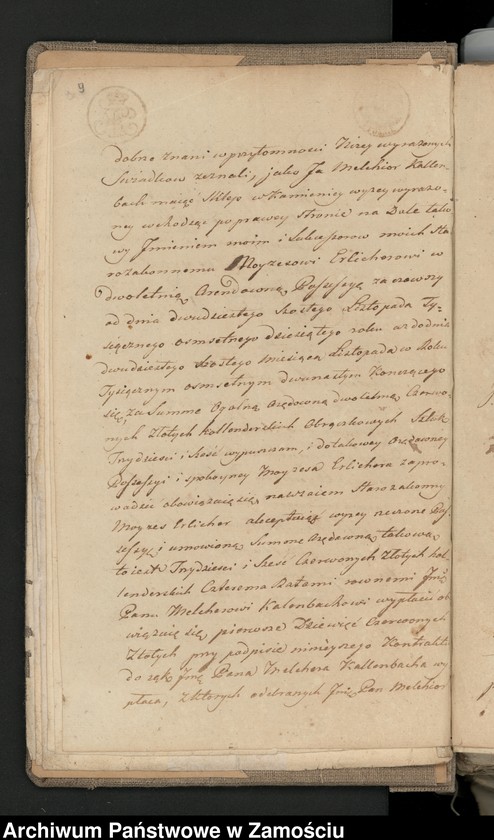 9
dobrze znani w przytomności Niżey wyrażonych
Swiadkow zeznali, jako Ja Melchior Kallen-
bach maiąc Sklep w Kamienicy wyzey wyrażo-
ney wchodząc po prawey stronie na Dole tako-
wy Jmieniem moim i Sukcessorow moich Sta
rozakonnemu Moyzesowi Erlichorowi w
Dwoletnią Arendowną Possessyą zacząwszy
od dnia dwudziestego Szostego Listopada Ty-
siącznego osmsetnego dziesiątego roku aż do dnia
dwudziestego Szostego Miesiąca Listopada w Roku
Tysiącznym osmsetnym dwunastym Kończącego
się, za Summę Ogolną Arędowną dwoletnią Czerwo-
nych Złotych hollenderskich Obrączkowych Sztuk
Trydzieści i Sześć wypuszczam, i do takowey Arędowney
Possessyi i spokoyney Moyzesa Erlichora zapro-
wadzić obowiązuię się, nawzaiem Starozakonny
Moyzes Erlichor akceptuiąc wyzey rzeczoną Pos
sessyą i umowioną Summę Arędowną takową
to iest Trydzieści i Sześć Czerwonych Złotych hol
lenderskich Czterema Ratami rownemi Jmć
Panu Melchorowi Kalenbachowi wypłacić ob
wiązuie się, pierwsze Dziewięć Czerwonych
Złotych przy podpisie ninieyszego Kontraktu
do rąk Jmć Pana Melchora Kallenbacha wy
płaca, z których odebranych Jmć Pan Melchior
Archiwum Państwowe w Zamościu